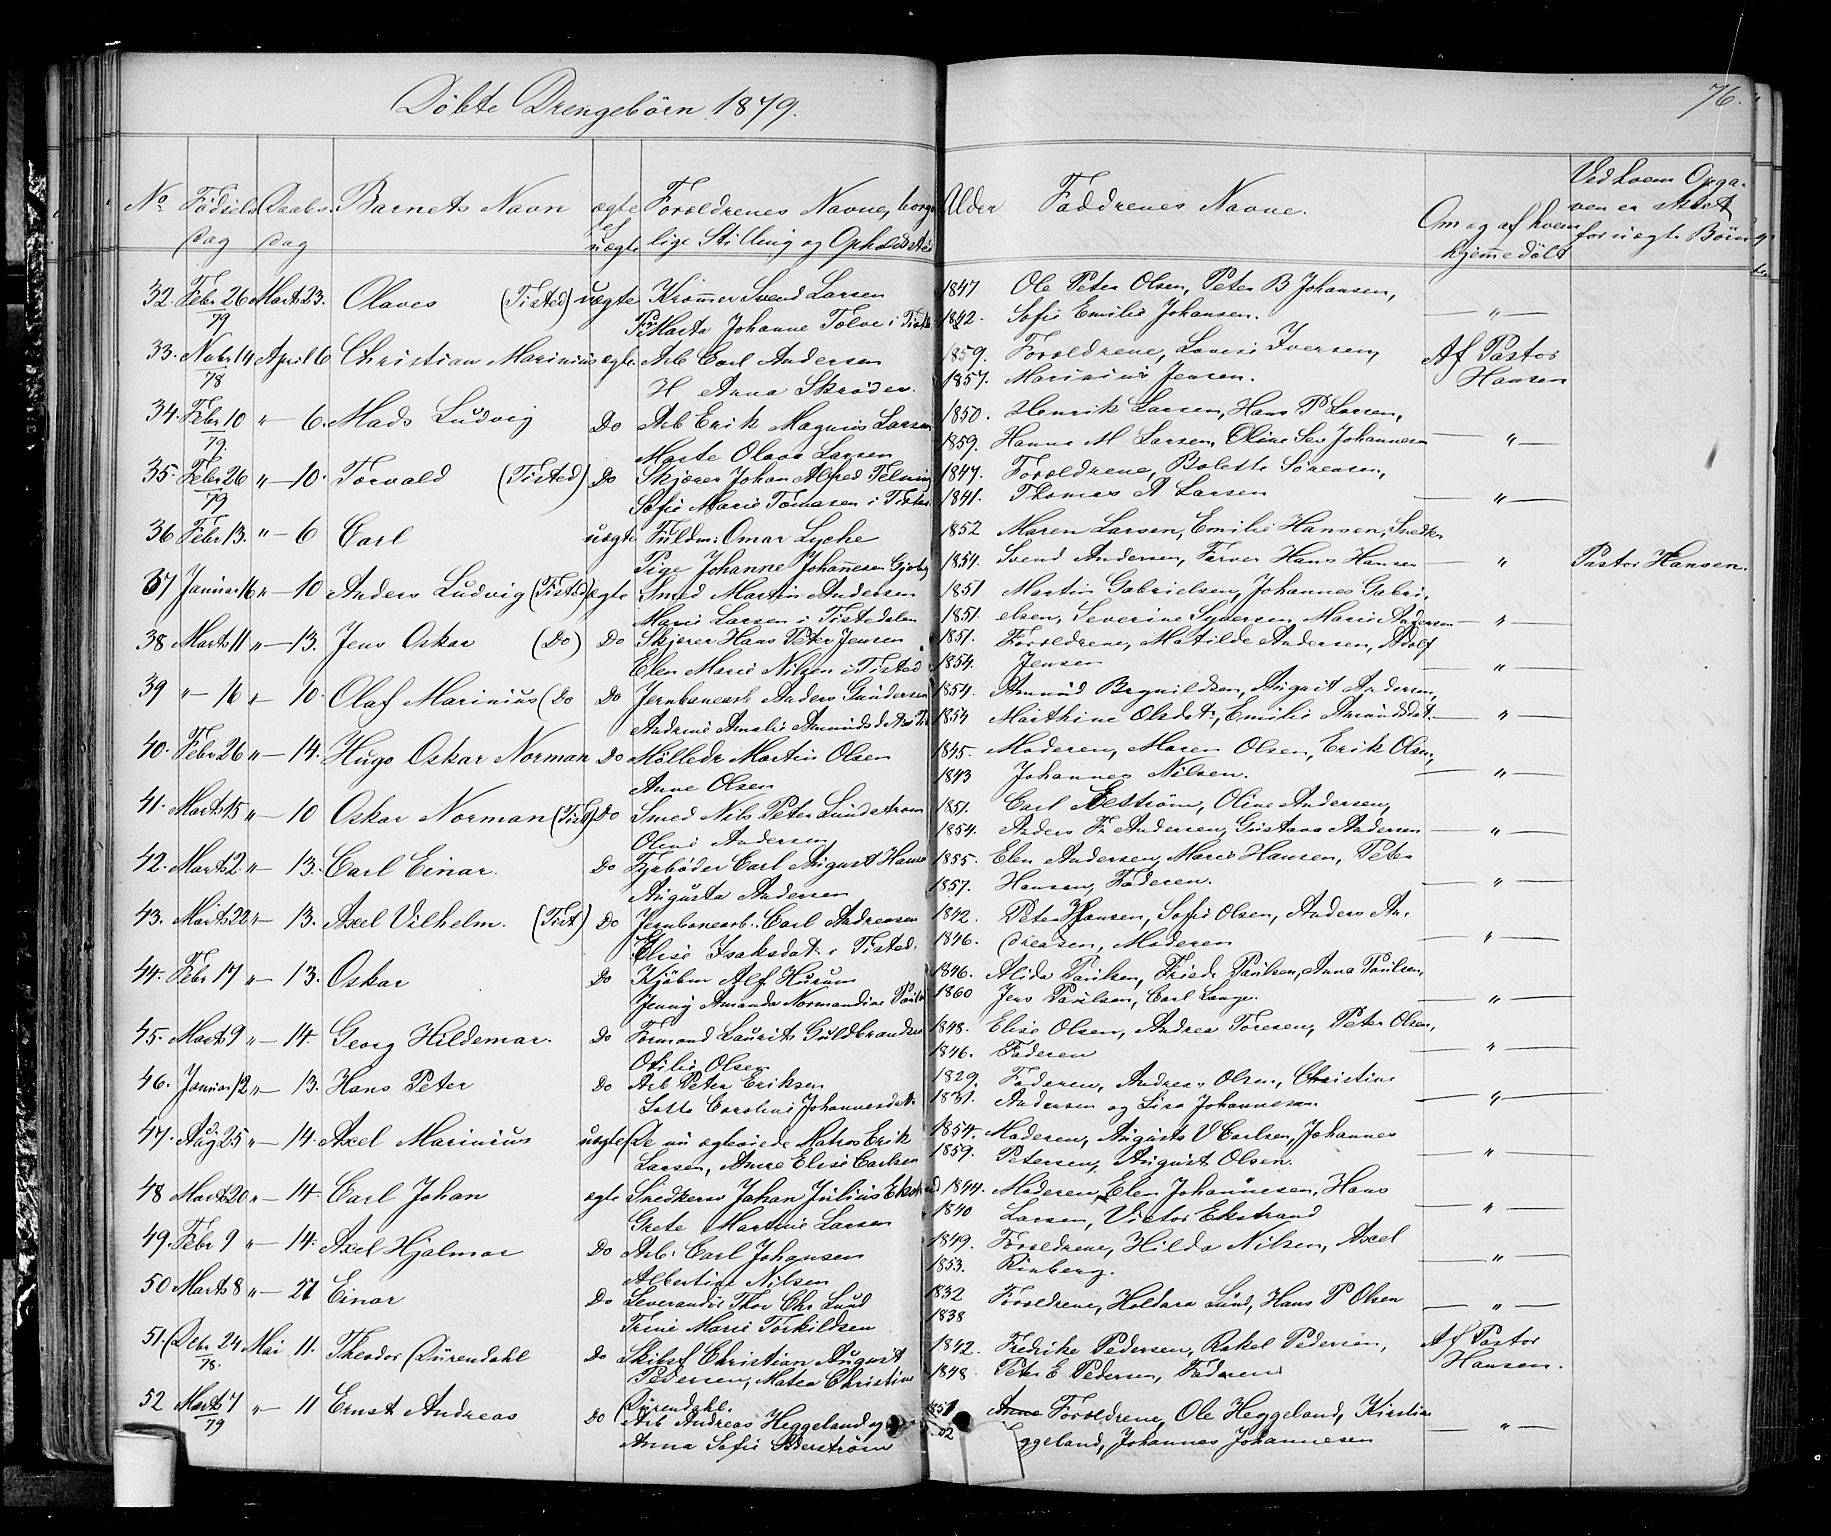 Döbte Drengebörn 1879.
76.
No Födsels Daabs Barnets Navn ægte Forældrenes Navne, borger- Alder Faddrenes Navne. Om og af hvem Ved hvem Opga-
dag dag uægte lige Stilling og Opholdssted hjemmedöbt ven er for uægte Börn
32. Febr 26 Marts 23. Olaves (Tisted) uægte Kræmer Svend Larsen 1847 Ole Peter Olsen, Peter B Johansen,
79 Marta Johanne Tolve i 1842. Sofie Emilie Johansen. — " —
33. Nvbr 14 April 6 Christian Marinius ægte. Arb Carl Andersen 1859. Forældrene, Lovise Iversen, Af Pastor
78 H Anna Skröder. 1857. Marinius Jensen. Hansen
34. Febr 10 " — 6. Mads Ludvig Do Arb Erik Magnus Larsen 1850. Henrik Larsen, Hans P Larsen,
79. Marte Olava Larsen 1859. Hanna M Larsen, Oline Sev Johannesen — " —
35. Febr 26 " — 10. Torvald (Tisted) Do Skjærer Johan Alfred 1847. Forældrene, Bolette Sörensen,
79 Sofie Marie Tomasen i 1841. Thomas A Larsen — " —
36 Febr 13. " — 6 Carl uægte Fuldm: Omar Lyche 1852 Maren Larsen, Emilie Hansen, Snedker
Pige Johanne Johannesen 1854. Svend Andersen, Farver Hans Hansen — " — Pastor Hansen.
37 Januar 16 " — 10 Anders Ludvig (Tisted) ægte Smed Martin Andersen 1851 Martin Gabrielsen, Johannes Gabri-
Marie Larsen i Tistedalen 1851. elsen, Severine Syversen, Marie Andersen — " —
38 Marts 11 " — 13. Jens Oskar (Do) Do Skjærer Hans Peter Jensen 1851. Forældrene, Matilde Andersen, Adolf
Elen Marie Nilsen i Tisted 1854. Jensen — " —
39 " — 16 " — 10. Olaf Marinius (Do Do Jernbanearb Anders Gundersen 1854. Amund Brynildsen, August Andersen,
Andrine Amalie 1854 Marthine Olsdat:, Emilie Amundsdat. — " —
40. Febr 26 " — 14. Hugo Oskar Norman Do Mölledr Martin Olsen 1845. Moderen, Maren Olsen, Erik Olsen,
Anne Olsen 1843 Johannes Nilsen. — " —
41. Marts 15 " — 10 Oskar Norman (Tist) Do Smed Nils Peter Lundström 1851. Carl, Oline Andersen,
Oline Andersen 1854. Anders Fr Andersen, Gustava Andersen — " —
42. Marts 2 " — 13. Carl Einar. Do Carl August 1855. Elen Andersen, Marie Hansen, Peter
Augusta Andersen 1857. Hansen, Faderen. — " —
43. Marts 22 " — 13. Axel Vilhelm. (Tist) Do Jernbanearb. Carl Andreasen 1842. Peter Hansen, Sofie Olsen, Anders An-
Elise Isaksdat: i Tisted. 1846. dreasen, Moderen — " —
44. Febr 17 " — 13. Oskar Do Kjöbm Alf Husum 1846. Alida Paulsen, Friedr Paulsen, Anna Paulsen,
Jenny Amanda Normandine 1860 Jens Paulsen, Carl Lange. — " —
45. Marts 9 " — 14. Georg Hildemar. Do Formand Laurits Guldbrandsen 1848. Elise Olsen, Andrea Toresen, Peter Olsen,
Otilie Olsen 1846. Faderen — " —
46. Januar 12 " — 13. Hans Peter Do Arb Peter Eriksen 1829. Faderen, Andrea Olsen, Christine
Lotte Caroline Johannesdat. 1831. Andersen og Lisa Johannesen — " —
47. Aug 25 " — 14. Axel Marinius uægte (De nu ægteviede Matros Erik 1854. Moderen, Augusta V Carlsen, Johannes
Larsen, Anne Elise Carlsen 1859. Petersen, August Olsen. — " —
48 Marts 20 " — 14. Carl Johan ægte Snedkersv Johan Julius 1844. Moderen, Elen Johannesen, Hans
Grete Martine Larsen 1840 Larsen, Victor Ekstrand — " —
49. Febr 9 " — 14. Axel Hjalmar Do Arb. Carl Johansen 1849. Forældrene, Hilda Nilsen, Axel
Albertine Nilsen 1853. Rinberg. — " —
50 Marts 8 " — 27 Einar Do Leverandör Thor Chr Lund 1832 Forældrene, Haldara Lund, Hans P Olsen
Trine Marie Torkildsen 1838 — " —
51. Debr 24 Mai 11. Theodor Dürendahl Do Skibsf Christian August 1842. Fredrike Pedersen, Rakel Pedersen, Af Pastor
78. Pedersen, Matea Christine 1848. Peter E Pedersen, Faderen Hansen.
Dürendahl.
52 Marts 7 " — 11 Ernst Andreas Do Arb Andreas Heggeland og Anne Forældrene, Ole Heggeland, Kirstine
79 Anna Sofie ggeland, Johannes Johannesen — " —